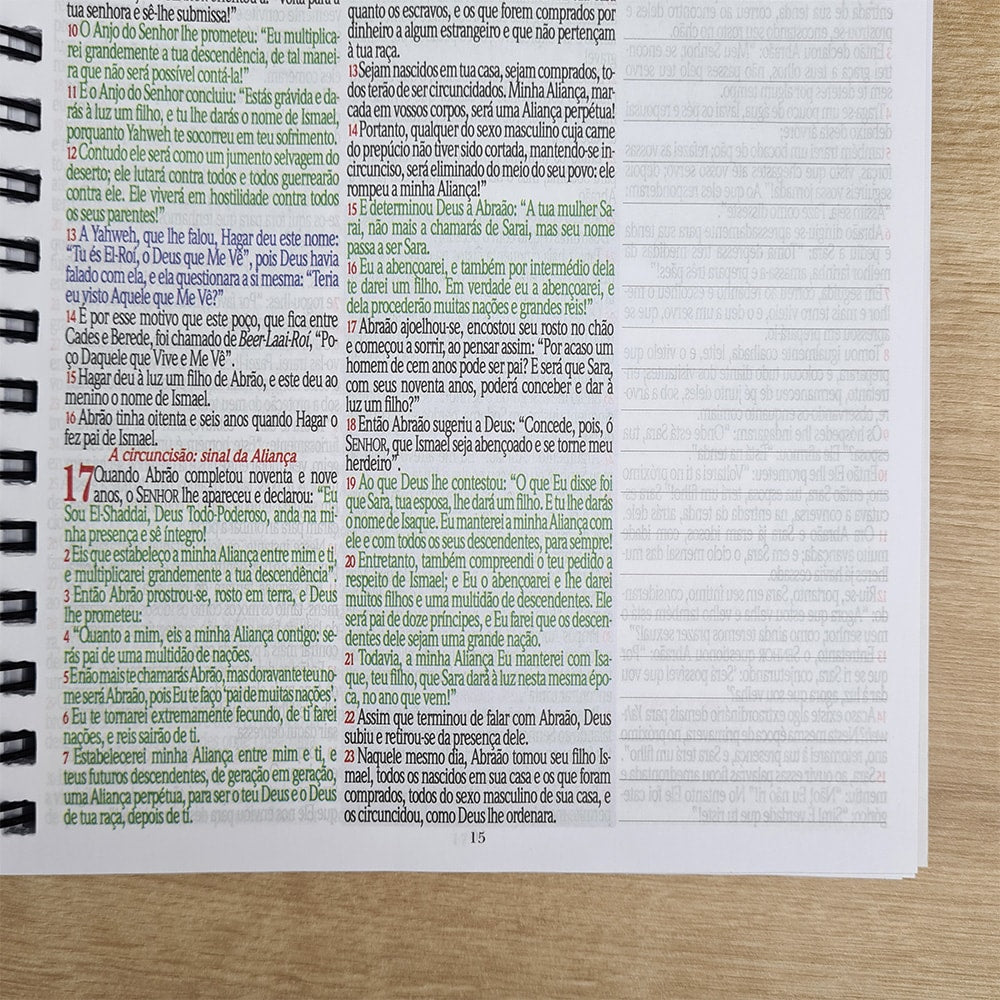 tua senhora e sê-lhe submissa!”
10 O Anjo do Senhor lhe prometeu: “Eu multiplica-
rei grandemente a tua descendência, de tal manei-
ra que não será possível contá-la!”
11 E o Anjo do Senhor concluiu: “Estás grávida e da-
rás à luz um filho, e tu lhe darás o nome de Ismael,
porquanto Yahweh te socorreu em teu sofrimento.
12 Contudo ele será como um jumento selvagem do
deserto; ele lutará contra todos e todos guerrearão
contra ele. Ele viverá em hostilidade contra todos
os seus parentes!”
13 A Yahweh, que lhe falou, Hagar deu este nome:
“Tu és El-Roí, o Deus que Me Vê”, pois Deus havia
falado com ela, e ela questionara a si mesma: “Teria
eu visto Aquele que Me Vê?”
14 É por esse motivo que este poço, que fica entre
Cades e Berede, foi chamado de Beer-Laai-Roí, “Po-
ço Daquele que Vive e Me Vê”.
15 Hagar deu à luz um filho de Abrão, e este deu ao
menino o nome de Ismael.
16 Abrão tinha oitenta e seis anos quando Hagar o
fez pai de Ismael.
A circuncisão: sinal da Aliança
17 Quando Abrão completou noventa e nove
anos, o SENHOR lhe apareceu e declarou: “Eu
Sou El-Shaddai, Deus Todo-Poderoso, anda na mi-
nha presença e sê íntegro!
2 Eis que estabeleço a minha Aliança entre mim e ti,
e multiplicarei grandemente a tua descendência”.
3 Então Abrão prostrou-se, rosto em terra, e Deus
lhe prometeu:
4 “Quanto a mim, eis a minha Aliança contigo: se-
rás pai de uma multidão de nações.
5 E não mais te chamarás Abrão, mas doravante teu no-
me será Abraão, pois Eu te faço ‘pai de muitas nações’.
6 Eu te tornarei extremamente fecundo, de ti farei
nações, e reis sairão de ti.
7 Estabelecerei minha Aliança entre mim e ti, e
teus futuros descendentes, de geração em geração,
uma Aliança perpétua, para ser o teu Deus e o Deus
de tua raça, depois de ti.
quanto os escravos, e os que forem comprados por
dinheiro a algum estrangeiro e que não pertençam
à tua raça.
13 Sejam nascidos em tua casa, sejam comprados, to-
dos terão de ser circuncidados. Minha Aliança, mar-
cada em vossos corpos, será uma Aliança perpétua!
14 Portanto, qualquer do sexo masculino cuja carne
do prepúcio não tiver sido cortada, mantendo-se in-
circunciso, será eliminado do meio do seu povo: ele
rompeu a minha Aliança!”
15 E determinou Deus à Abraão: “A tua mulher Sa-
rai, não mais a chamarás de Sarai, mas seu nome
passa a ser Sara.
16 Eu a abençoarei, e também por intermédio dela
te darei um filho. Em verdade eu a abençoarei, e
dela procederão muitas nações e grandes reis!”
17 Abraão ajoelhou-se, encostou seu rosto no chão
e começou a sorrir, ao pensar assim: “Por acaso um
homem de cem anos pode ser pai? E será que Sara,
com seus noventa anos, poderá conceber e dar à
luz um filho?”
18 Então Abraão sugeriu a Deus: “Concede, pois, ó
SENHOR, que Ismael seja abençoado e se torne meu
herdeiro”.
19 Ao que Deus lhe contestou: “O que Eu disse foi
que Sara, tua esposa, lhe dará um filho. E tu lhe darás
o nome de Isaque. Eu manterei a minha Aliança com
ele e com todos os seus descendentes, para sempre!
20 Entretanto, também compreendi o teu pedido a
respeito de Ismael; e Eu o abençoarei e lhe darei
muitos filhos e uma multidão de descendentes. Ele
será pai de doze príncipes, e Eu farei que os descen-
dentes dele sejam uma grande nação.
21 Todavia, a minha Aliança Eu manterei com Isa-
que, teu filho, que Sara dará à luz nesta mesma épo-
ca, no ano que vem!”
22 Assim que terminou de falar com Abraão, Deus
subiu e retirou-se da presença dele.
23 Naquele mesmo dia, Abraão tomou seu filho Is-
mael, todos os nascidos em sua casa e os que foram
comprados, todos do sexo masculino de sua casa, e
os circuncidou, como Deus lhe ordenara.
15